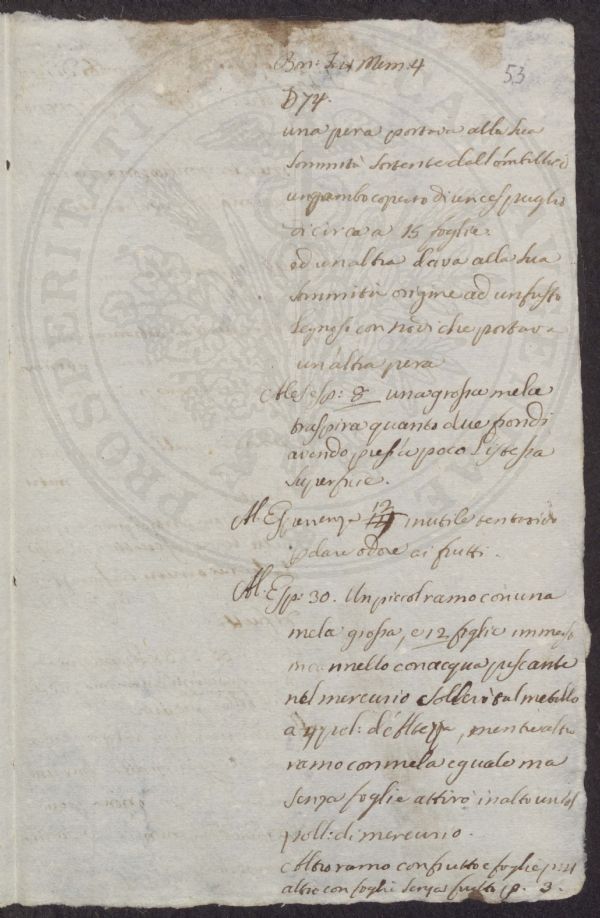 53
Bon: Tix Mem: 4
D 74.
una pera portava alla sua
sommità sortente dall'ombillico
un gambo coperto di un cespuglio
di circa a 15 foglie.
ed un altra dava alla sua
sommità origine ad un fusto
legnoso con nodi che portava
un'altra pera
Ales esp: 8 una grossa mela
traspira quanto due frondi
avendo press'a poco l'istessa
superficie.
Al. Esperienza 12 inutile tentativo
p dare odore ai frutti.
Al. Esp: 30. Un piccol ramo con una
mela grossa, e 12 foglie immerso
in cannello con acqua pescante
nel mercurio sollevò sul metallo
a 4 pol: d'altezza, mentre altro
ramo con mela eguale ma
senza foglie attirò in alto un sol
poll: di mercurio.
Altro ramo con frutto e foglie p: 4
altro con foglie senza frutto p. 3.
PROSPERITATI